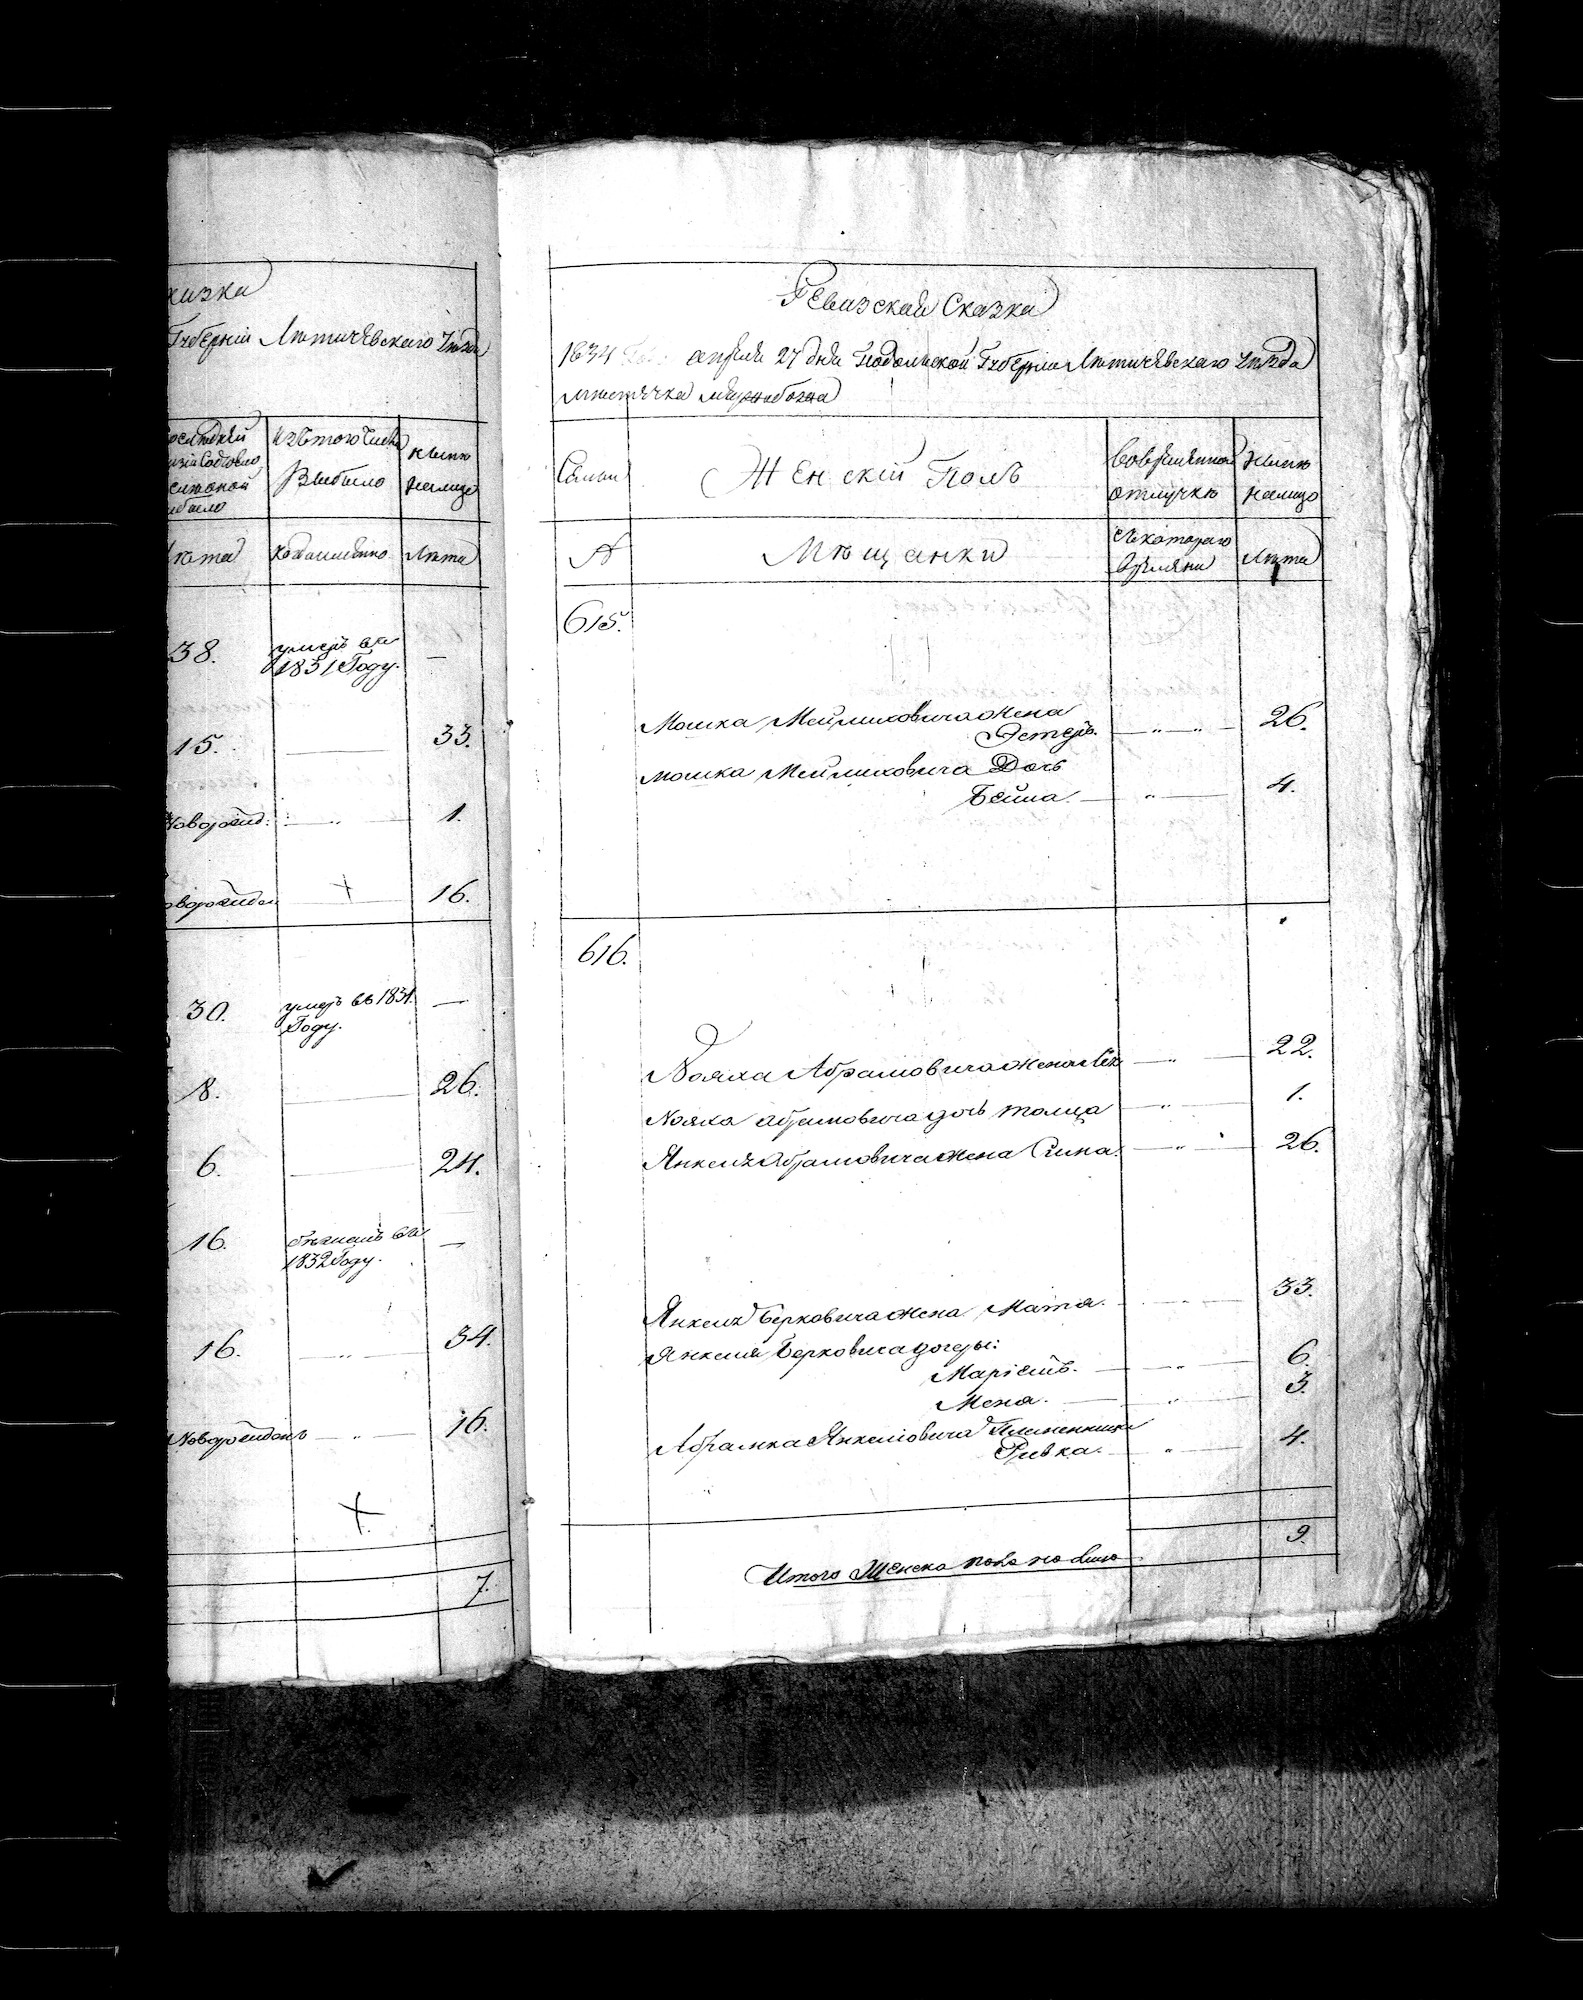 казка
Губерніи Лѣтичевскаго Уѣзда
Изъ того числа выбыло
нынѣ на лицо
Лѣта
Лѣта
38. умеръ въ 1831 Году. —
15. 33.
Новорожд. 1.
16.
30. умеръ въ 1831. Году. —
8. 26.
6. 24.
16. въ 1832 Году. —
16. 34.
Новорожденъ 16.
7.
Ревизская Сказка
1834 апреля 27 дня Подольской Губерніи Лѣтичевскаго Уѣзда
мѣстечка Межибожа
Семьи
Женскій Полъ
Во временной отлучкѣ
Нынѣ на лицо
№
Мѣщанки
Съ котораго времяни
Лѣта
615.
Мошка Мейлиховича жена
Эстеръ. 26.
Мошка Мейлиховича Дочь
Бейла. 4.
616.
Абрамовича жена 22.
Абрамовича дочь 1.
Янкеля Абрамовича жена 26.
Янкеля Берковича жена 33.
Янкеля Берковича дочери:
Маріемъ. 6.
3.
Абрамка Янкеліовича Племенница
Ривка. 4.
Итого Женска пола на лицо 9.